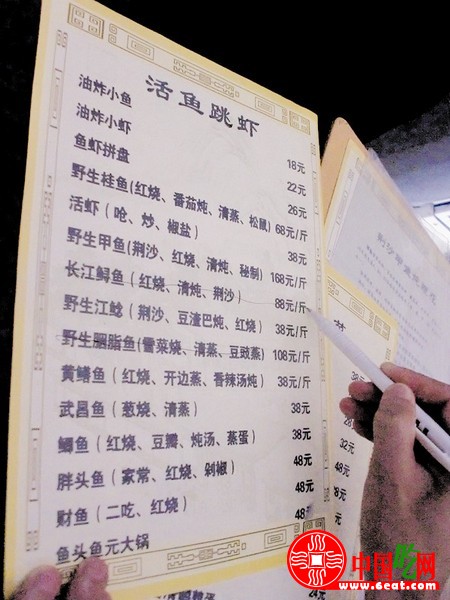 活鱼跳虾
油炸小鱼 18元
油炸小虾 22元
鱼虾拼盘 26元
野生桂鱼(红烧、番茄炖、清蒸、松鼠) 68元/斤
活虾（呛、炒、椒盐） 38元
野生甲鱼(荆沙、红烧、清炖、秘制) 168元/斤
长江鲟鱼（红烧、清炖、荆沙） 88元/斤
野生江鲶（荆沙、豆渣巴炖、红烧） 38元/斤
野生胭脂鱼(雪菜烧、清蒸、豆豉蒸) 108元/斤
黄鳍鱼（红烧、开边蒸、香辣汤炖） 38元/斤
武昌鱼（葱烧、清蒸） 38元
鲫鱼（红烧、豆瓣、炖汤、蒸蛋） 38元
胖头鱼（家常、红烧、剁椒） 48元
财鱼（二吃、红烧） 48元
鱼头鱼元大锅 48元
32元
48元
24元
中国吃网
www.6eat.com